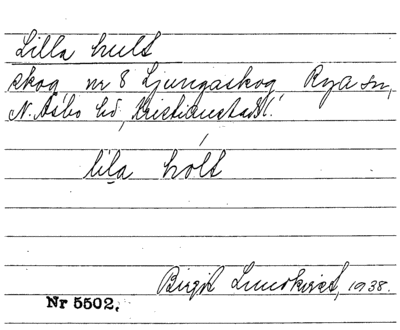 Lilla hult
skog, nr 8 Ljungaskog, Rya sn,
N. Åsbo hd, Kristianstads l.
lila hólt
Birgit Lundkvist, 1938.
Nr 5502.